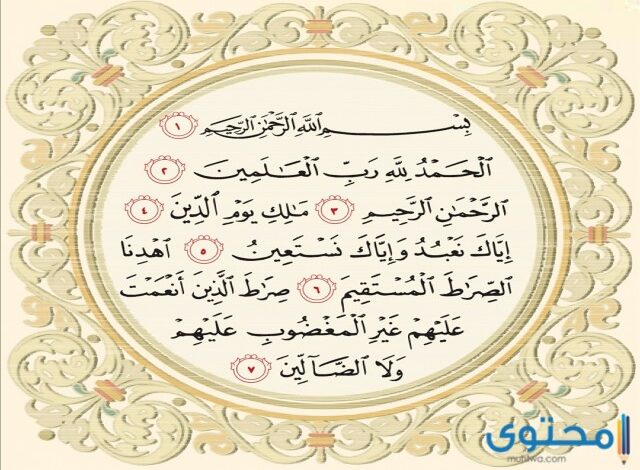 بِسْمِ اللَّهِ الرَّحْمَٰنِ الرَّحِيمِ ١
الْحَمْدُ لِلَّهِ رَبِّ الْعَالَمِينَ ٢
الرَّحْمَٰنِ الرَّحِيمِ ٣ مَالِكِ يَوْمِ الدِّينِ ٤
إِيَّاكَ نَعْبُدُ وَإِيَّاكَ نَسْتَعِينُ ٥ اهْدِنَا
الصِّرَاطَ الْمُسْتَقِيمَ ٦ صِرَاطَ الَّذِينَ أَنْعَمْتَ
عَلَيْهِمْ غَيْرِ الْمَغْضُوبِ عَلَيْهِمْ
وَلَا الضَّالِّينَ ٧
محتوى
muhtwa.com